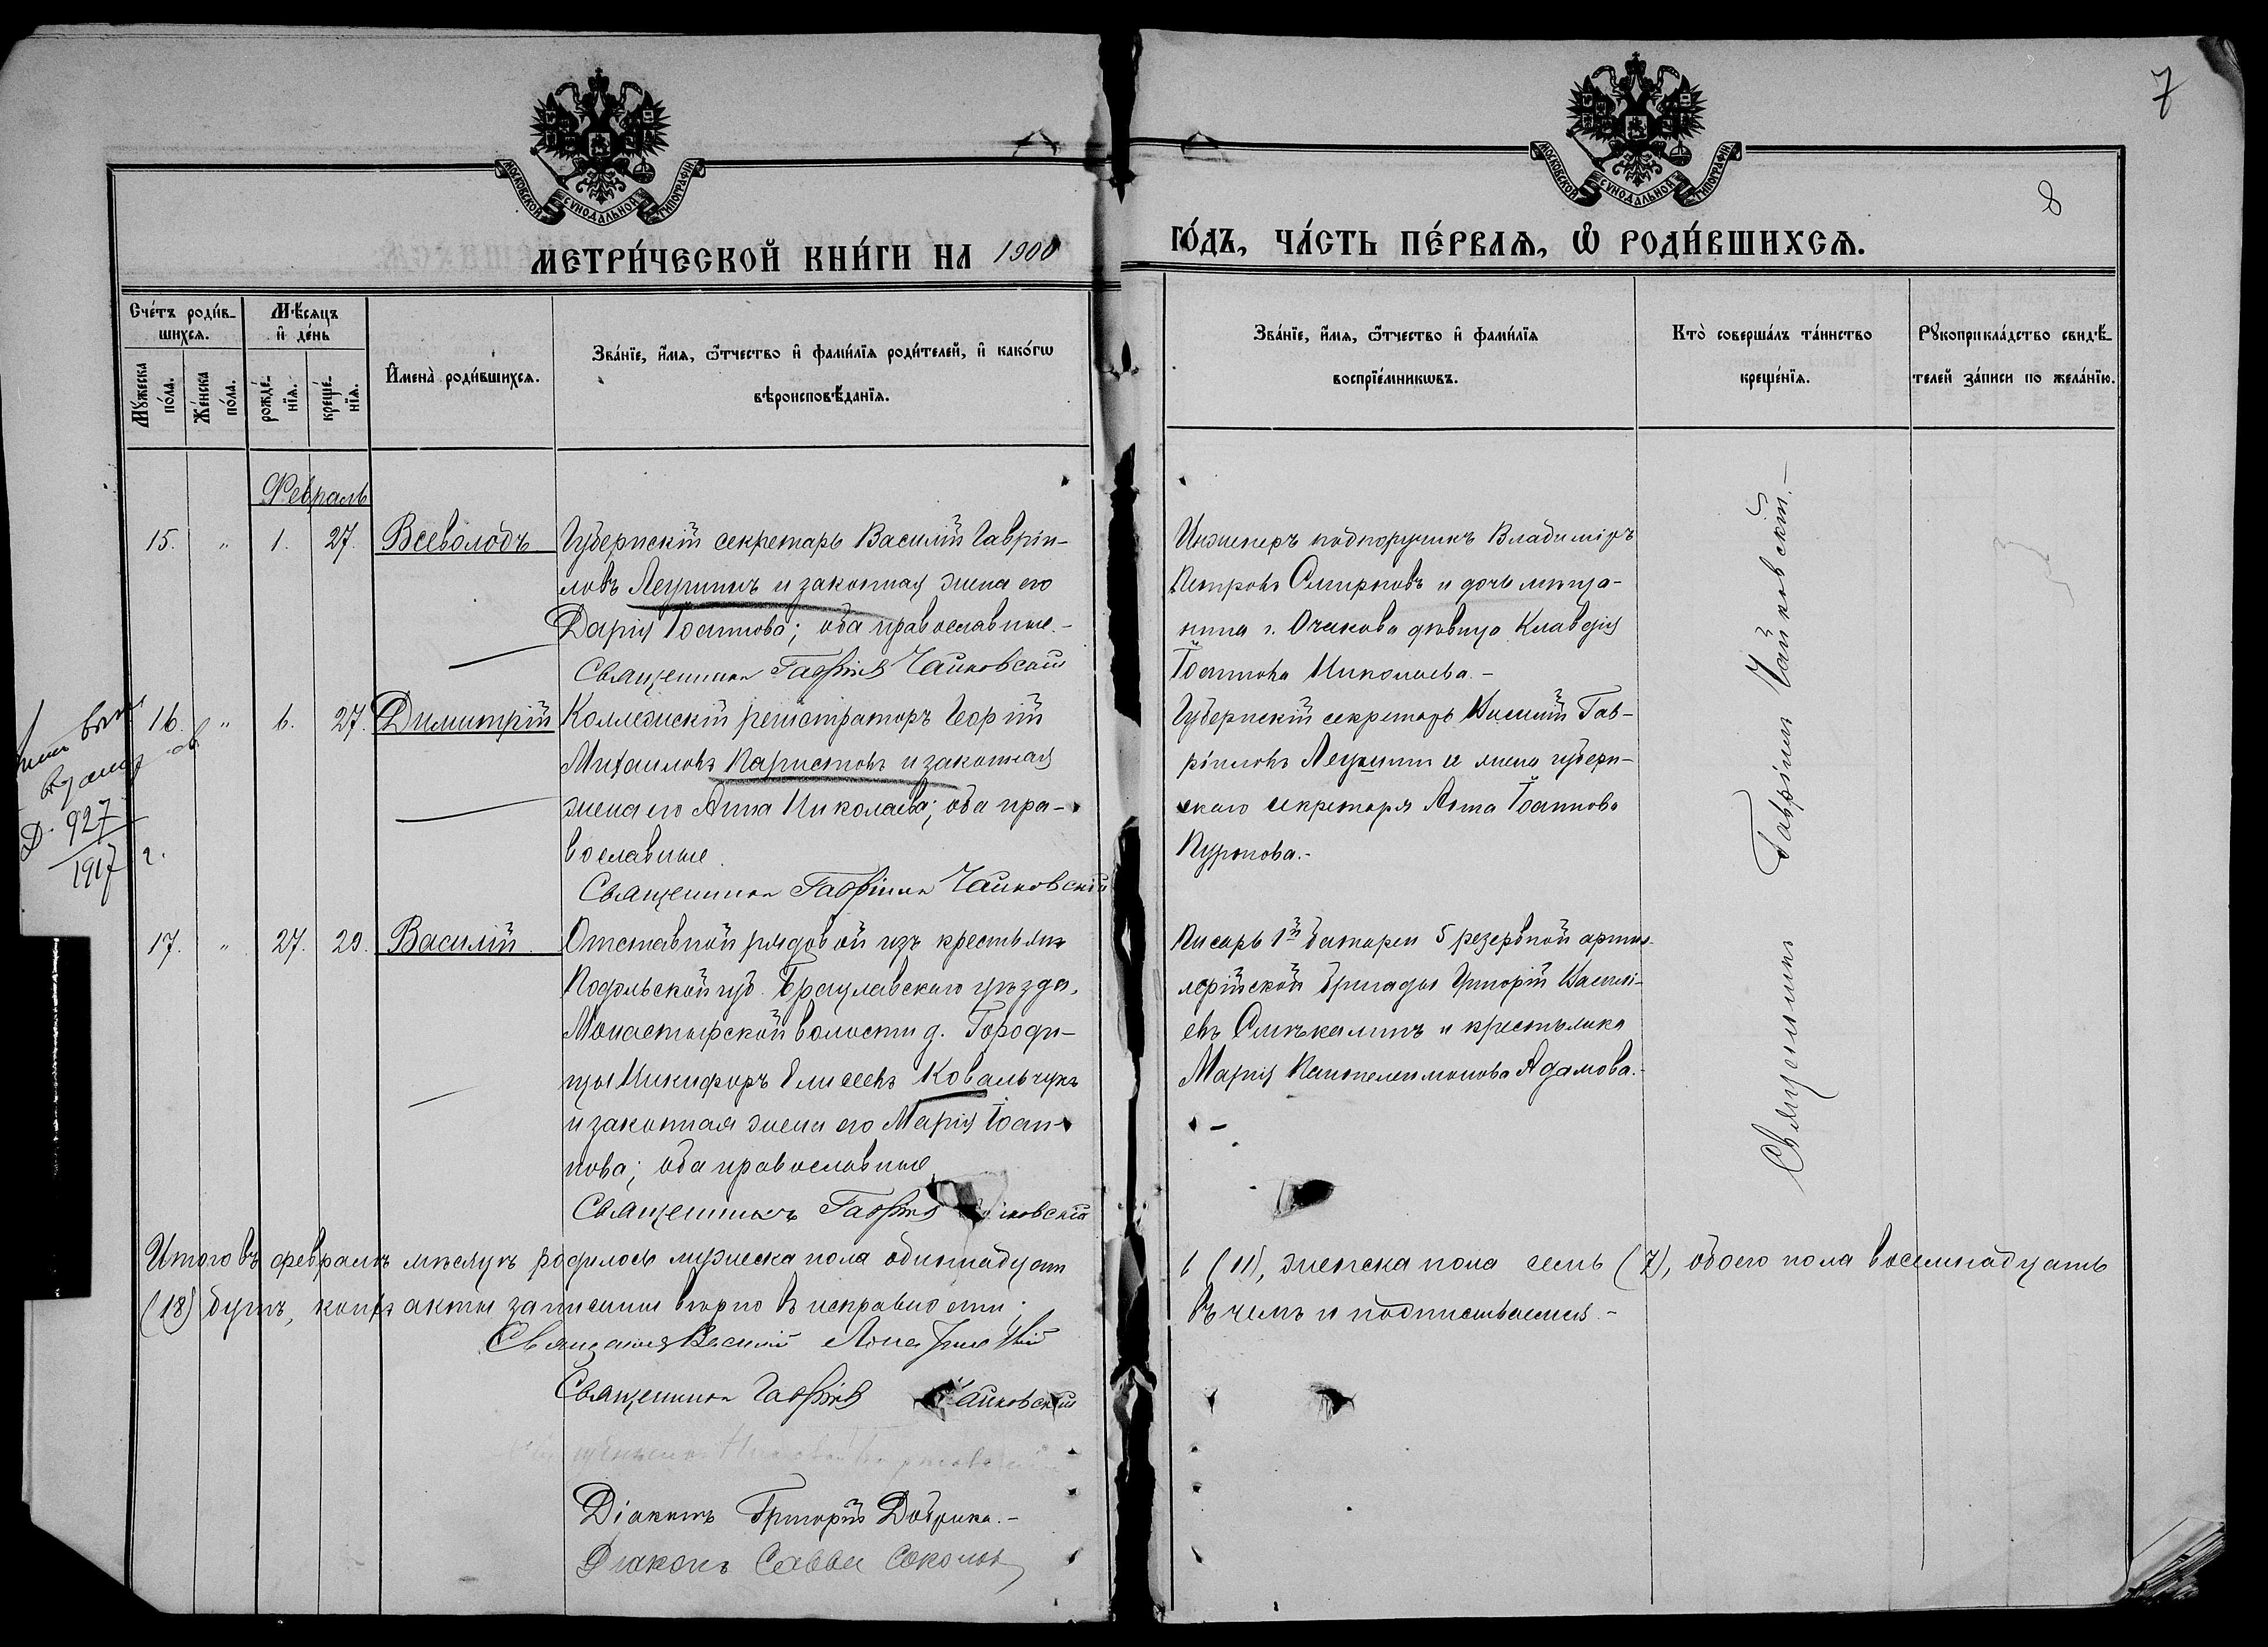 7
8
МОСКОВСКОЙ СУНОДАЛЬНОЙ ТИПОГРАФІИ
МОСКОВСКОЙ СУНОДАЛЬНОЙ ТИПОГРАФІИ
МЕТРИ́ЧЕСКОЙ КНИ́ГИ НА 1900
ГО́ДЪ, ЧА́СТЬ ПЕ́РВАѦ, Ѡ РОДИ́ВШИХСѦ.
Сче́тъ роди́в-
шихсѧ.
Мѣ́сѧцъ
и҆ де́нь
Мꙋ́жеска
по́ла.
Же́нска
по́ла.
рожде́-
нїѧ.
креще́-
нїѧ.
И҆мена̀ роди́вшихсѧ.
Зва́нїе, и҆́мѧ, ѻ҆́тчество и҆ фамі́лїѧ роди́телей, и҆ како́гѡ
вѣроисповѣ́данїѧ.
Зва́нїе, и҆́мѧ, ѻ҆́тчество и҆ фамі́лїѧ
воспрїе́мникѡвъ.
Кто̀ соверша́лъ та́инство
креще́нїѧ.
Рꙋкоприкла́дство свидѣ́-
телей за́писи по жела́нїю.
Февраль
15. " 1. 27. Всеволодъ
Губернскій секретарь Василій Гаврiи-
ловъ и законная жена его
Дарія Іоаннова; оба православные.-
Священникъ Гавріилъ Чайковскій
Инженеръ подпоручикъ Владиміръ
Петровъ Смирновъ и дочь мѣща-
нина г. Очакова дѣвица Клавдія
Іоаннова Николаева.-
16. " 6. 27. Димитрій
Коллежскій регистраторъ Георгій
Михаиловъ и законная
жена его Анна Николаева; оба пра-
вославные.
Священникъ Гавріилъ Чайковскій
Губернскій секретарь Василій Гав-
ріиловъ и жена губерн-
скаго секретаря Анна Іоаннова
Д. 927
1917 г.
17. " 27. 29. Василій
Отставной рядовой изъ крестьянъ
Подольской губ. Брацлавскаго уѣзда,
Монастырской волости д. Городи-
щы Никифоръ Елисеевъ Ковальчукъ
и законная жена его Марія Іоан-
нова; оба православные
Священникъ Гавріилъ Чайковскій
Писарь 1й батареи 5 резервной артил-
лерійской бригады Григорій Василі-
евъ и крестьянка
Марія Пантелеимонова Адамова.-
Священникъ Гавріилъ Чайковскій.-
Итого въ февралѣ мѣсяцѣ родилось мужеска пола одиннадцат
ь (11), женска пола семь (7), обоего пола восемнадцать
(18) душъ, акты записаны вѣрно въ исправности
въ чемъ и подписываемся.-
Священникъ Василій
Священникъ Гавріилъ Чайковскій
Діаконъ Григорій
Діаконъ Савва Соколов